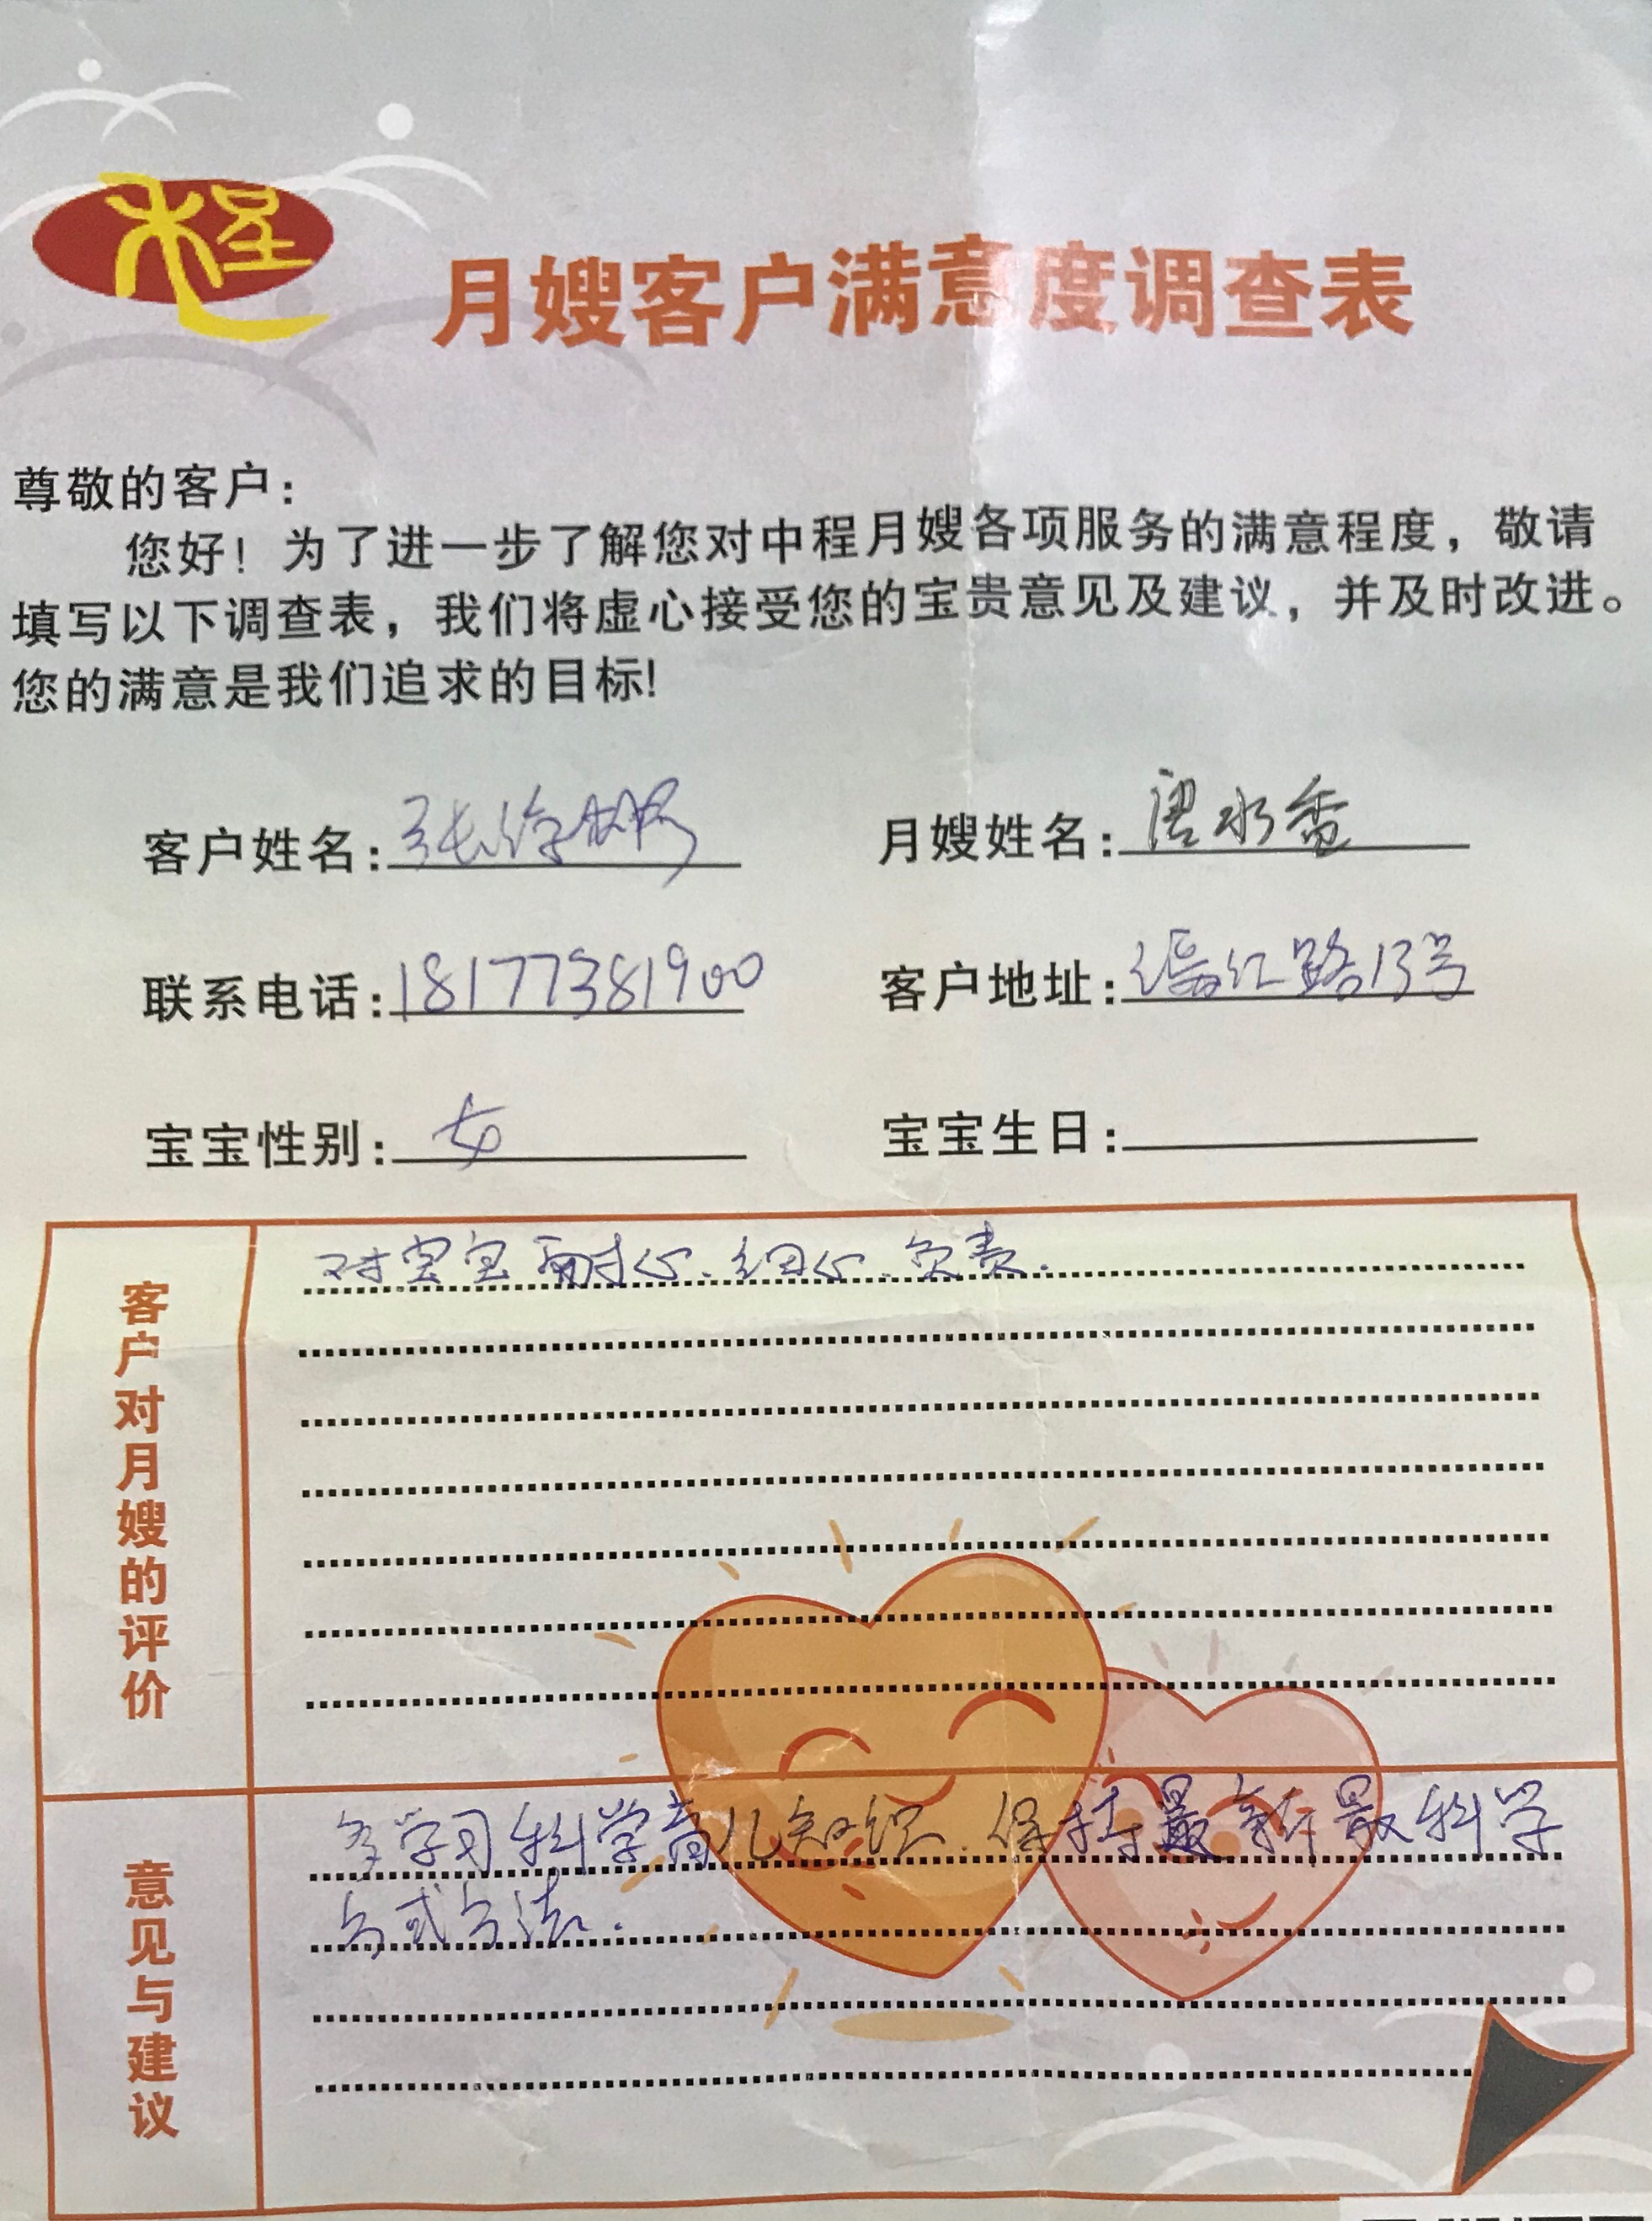 程
月嫂客户满意度调查表
尊敬的客户：
您好！为了进一步了解您对中程月嫂各项服务的满意程度，敬请
填写以下调查表，我们将虚心接受您的宝贵意见及建议，并及时改进。
您的满意是我们追求的目标！
客户姓名：张 鹏 月嫂姓名：唐水香
联系电话：18177381900 客户地址：漓江路13号
宝宝性别：女 宝宝生日：
客户对月嫂的评价
对宝宝耐心、细心、负责.
意见与建议
多学习科学育儿知识、保持最新最科学
方式方法.